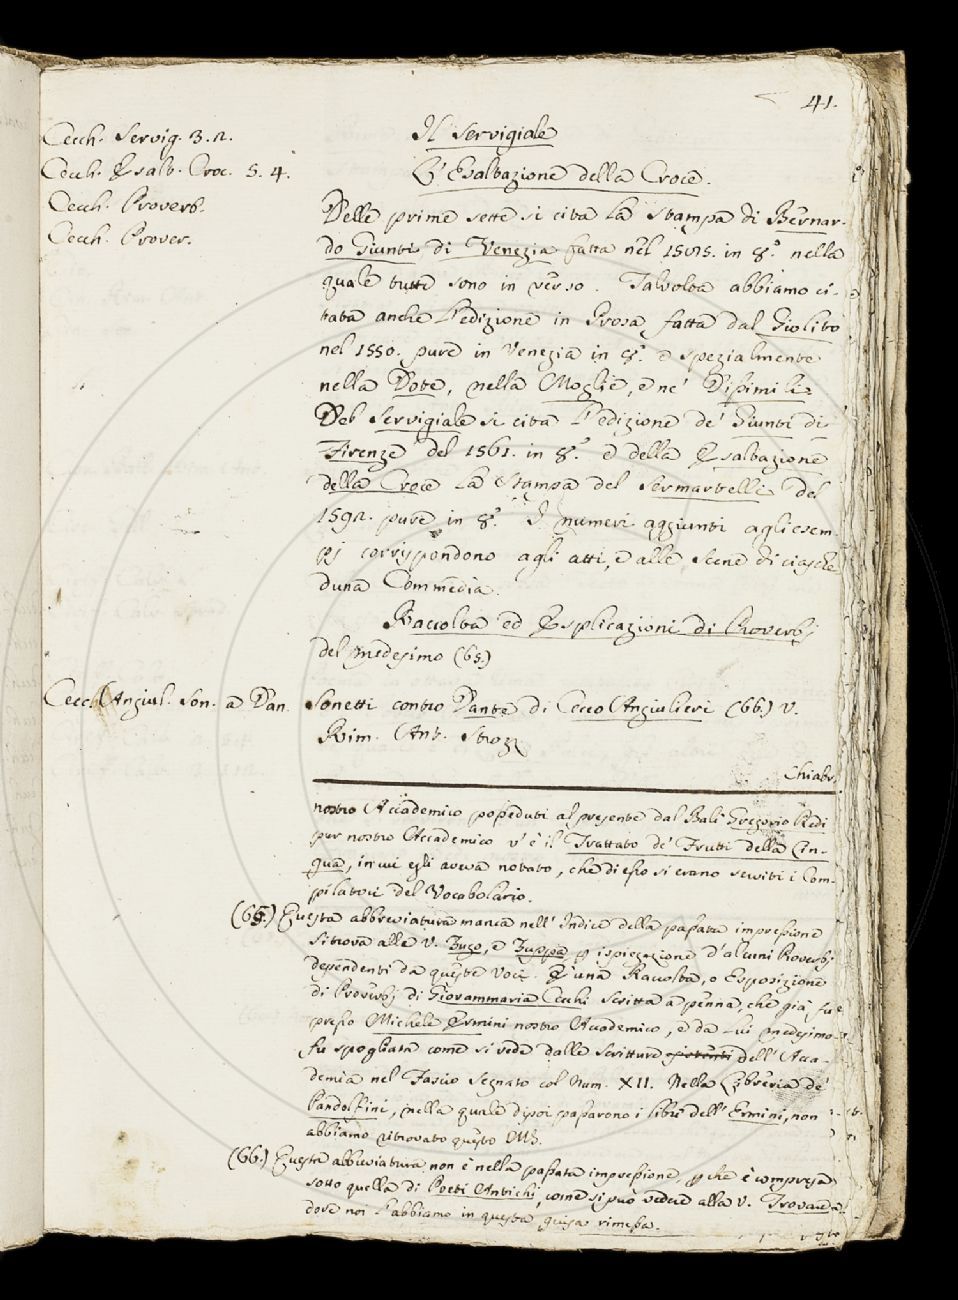 41.
Cecch. Servig. 3. 2.
Il Servigiale
Cecch. Esalt. Croc. 5. 4.
L'Esaltazione della Croce.
Cecch. Proverb.
Cecch. Prover.
Delle prime sette si cita la stampa di Bernar-
do Giunti di Venezia fatta nel 1585. in 8.° nella
quale tutte sono in verso. Talvolta abbiamo ci-
tata anche l'edizione in Prosa fatta dal Giolito
nel 1550. pure in Venezia in 8.° e spezialmente
nella Dote, nella Moglie, e ne' Dissimili.
Del Servigiale si cita l'edizione de' Giunti di
Firenze del 1561. in 8.° e della Esaltazione
della Croce la Stampa del Sermartelli del
1592. pure in 8.° I numeri aggiunti agli esem-
pj corrispondono agli atti, e alle scene di ciasche
duna Commedia.
Raccolta ed Esplicazioni di Proverbj
del medesimo (65.)
Cecc. Angiul. Son. a Dan.
Sonetti contro Dante di Cecco Angiulieri (66.) V.
Rim. Ant. Stroz.
Chiabr.
nostro Accademico posseduti al presente dal Balì Gregorio Redi
pur nostro Accademico v'è il Trattato de' Frutti della Cin-
qua, in cui egli aveva notato, che di esso si erano serviti i Com-
pilatori del Vocabolario.
(65.) Questa abbreviatura manca nell' Indice della passata impressione
si trova alle V. Zugo, e Zuppa p ispiegazione d'alcuni Proverbj
dependenti da queste Voci. E' una Raccolta, o Esposizione
di Proverbj di Giovammaria Cecchi scritta a penna, che già fu
presso Michele Ermini nostro Accademico, e da lui medesimo
fu spogliata come si vede dalle scritture dell' Acca-
demia nel Fascio segnato col Num. XII. Nella Libreria de'
Pandolfini, nella quale dipoi passarono i libri dell' Ermini, non
abbiamo ritrovato questo MS.
(66.) Questa abbreviatura non è nella passata impressione, p che è compresa
sotto quella di Poeti Antichi, come si può vedere alla V. Trovare
dove noi l'abbiamo in questa guisa rimessa.